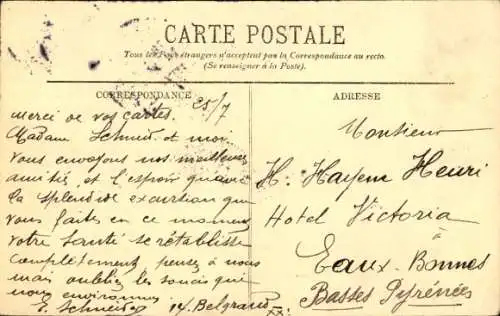 CARTE POSTALE
Tous les Pays étrangers n'acceptent pas la Correspondance au recto.
(Se renseigner à la Poste).
CORRESPONDANCE
25/7
merci de vos cartes.
Madame Schmid et moi
vous envoyons nos meilleures
amitiés et l'espoir qu'avec
la splendide excursion que
vous faites en ce moment
votre santé se rétablisse
complètement pensez à nous
mais oubliez les soucis qui
nous environnent
E. Schmid 14, Belgrand
ADRESSE
Monsieur
H. Hayem Henri
Hotel Victoria
à
Eaux-Bonnes
Basses Pyrénées